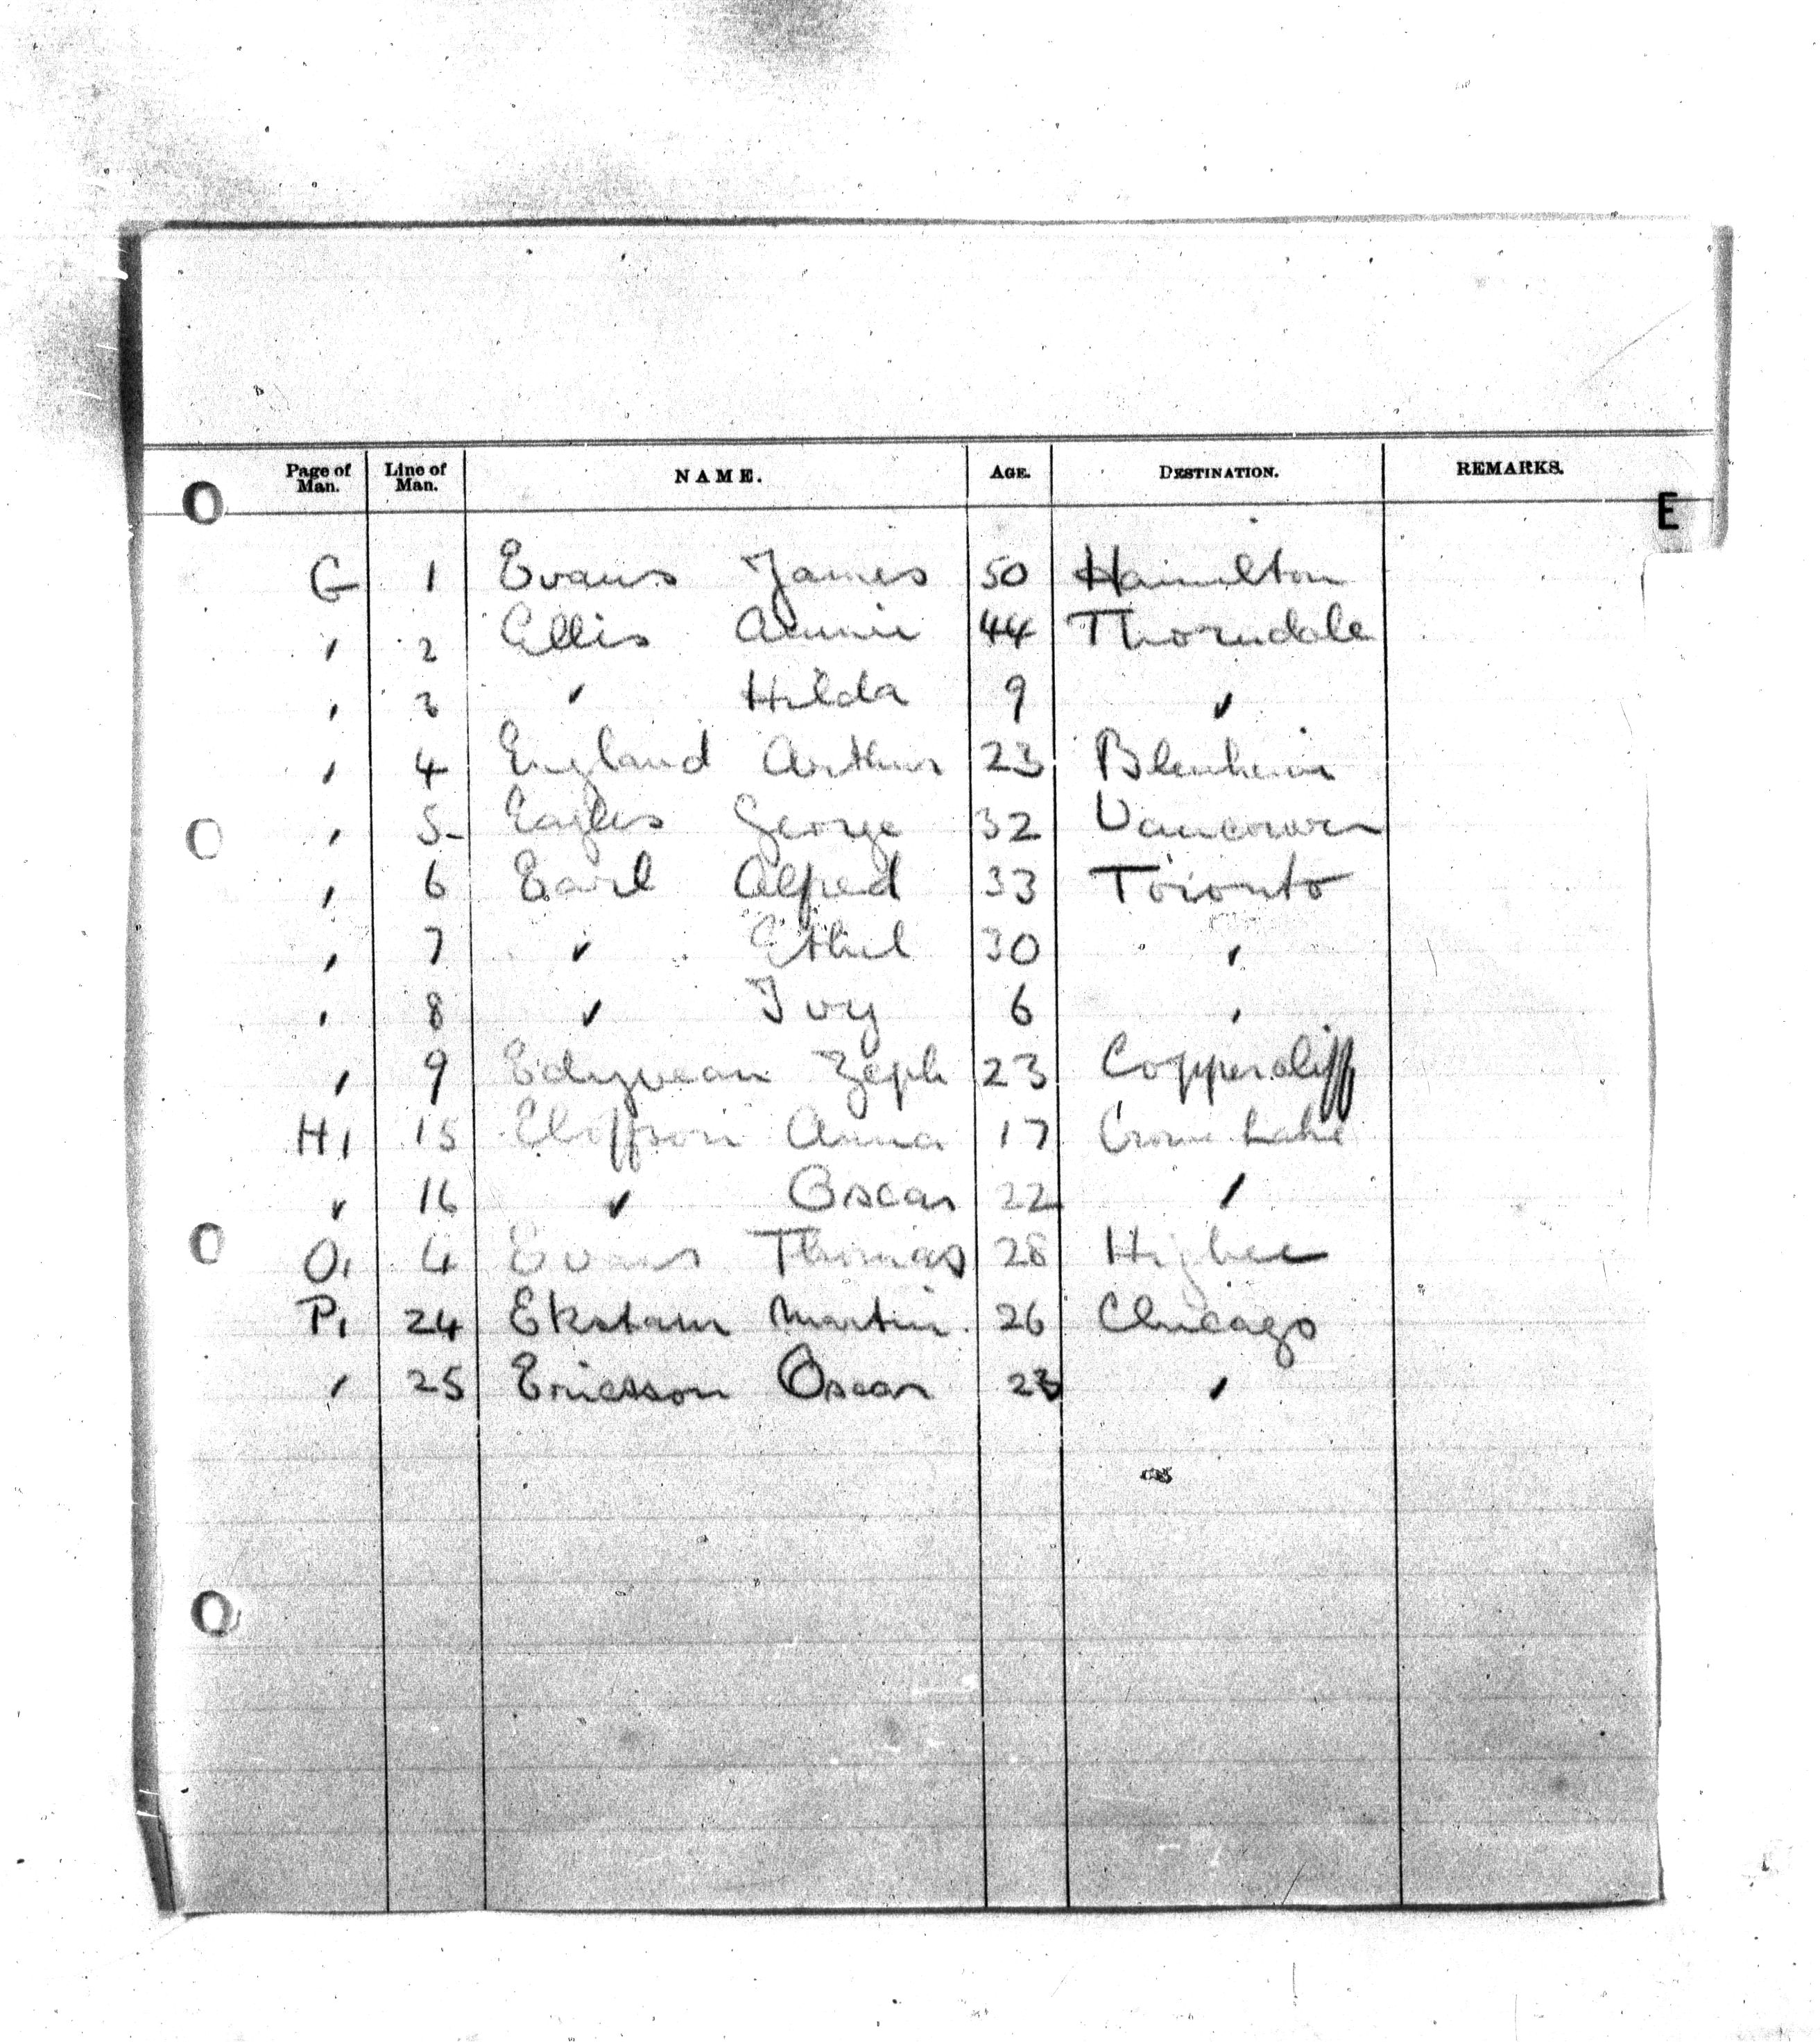 Page of Man. Line of Man. NAME. AGE. DESTINATION. REMARKS.
E
G 1 Evans James 50 Hamilton
" 2 Ellis Annie 44 Thorndale
" 3 " Hilda 9 "
" 4 England Arthur 23 Blenheim
" 5 Eagles George 32 Vancouver
" 6 Earl Alfred 33 Toronto
" 7 " Ethel 30 "
" 8 " Ivy 6 "
" 9 Edyvean Zeph 23 Coppercliff
H 15 Anna 17 Lake
" 16 " Oscar 22 "
O 4 Evans Thomas 28 Higbee
P 24 Ekstam Martin 26 Chicago
" 25 Ericsson Oscar 23 "